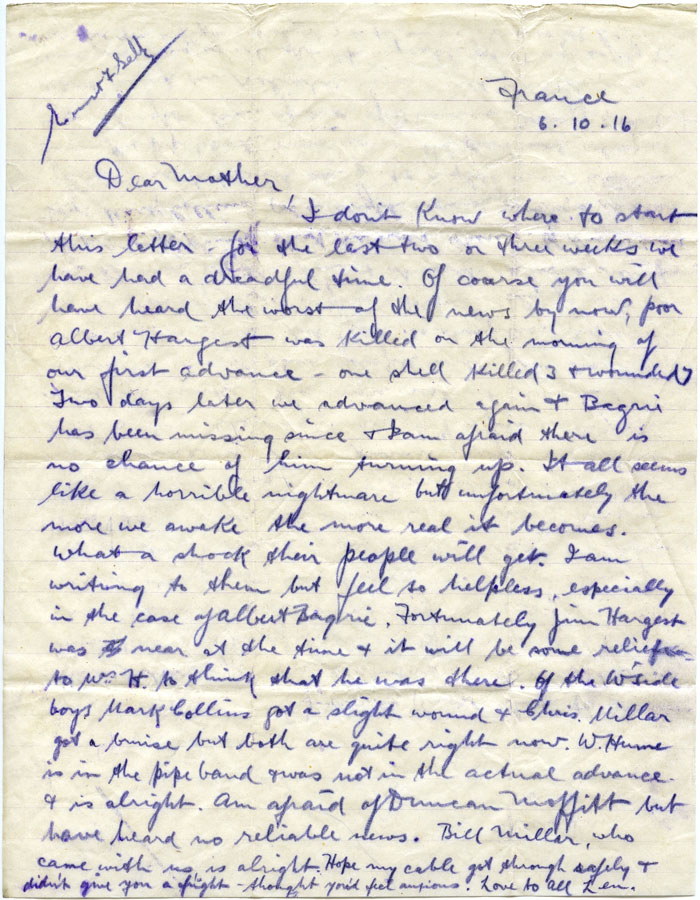 France
6.10.16
Dear Mother,
I don't know where to start
this letter - for the last two or three weeks we
have had a dreadful time. Of course you will
have heard the worst of the news by now, poor
Albert Hargest was killed on the morning of
our first advance - one shell killed 3 & wounded 7
Two days later we advanced again & Bagrie
has been missing since & I am afraid there is
no chance of him turning up. It all seems
like a horrible nightmare but unfortunately the
more we awake the more real it becomes.
What a shock their people will get. I am
writing to them but feel so helpless, especially
in the case of Albert Bagrie. Fortunately Jim Hargest
was near at the time & it will be some relief
to Mrs H. to think that he was there. Of the W'side
boys Mark Collins got a slight wound & Chris. Millar
got a bruise but both are quite right now. W. Hume
is in the pipe band & was not in the actual advance
& is alright. Am afraid of Duncan Moffitt but
have heard no reliable news. Bill Millar, who
came with us is alright. Hope my cable got through safely &
didn't give you a fright - thought you'd feel anxious. Love to all Len.